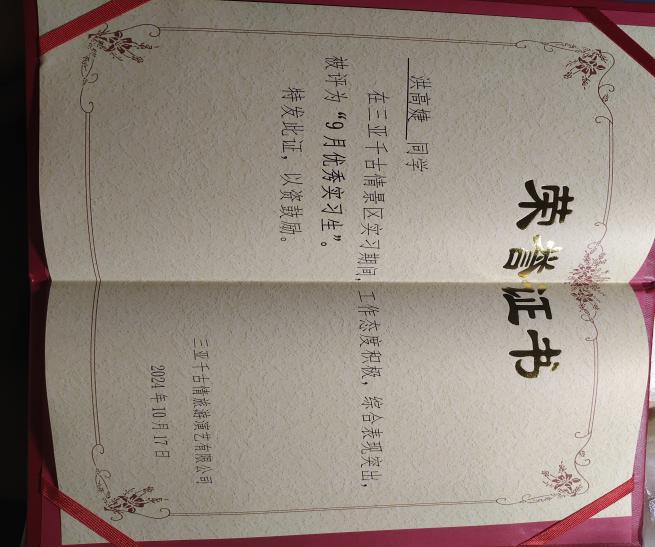 荣誉证书
洪高婕 同学
在三亚千古情景区实习期间，工作态度积极，综合表现突出，
被评为“9月优秀实习生”。
特发此证，以资鼓励。
三亚千古情旅游演艺有限公司
2024年10月17日